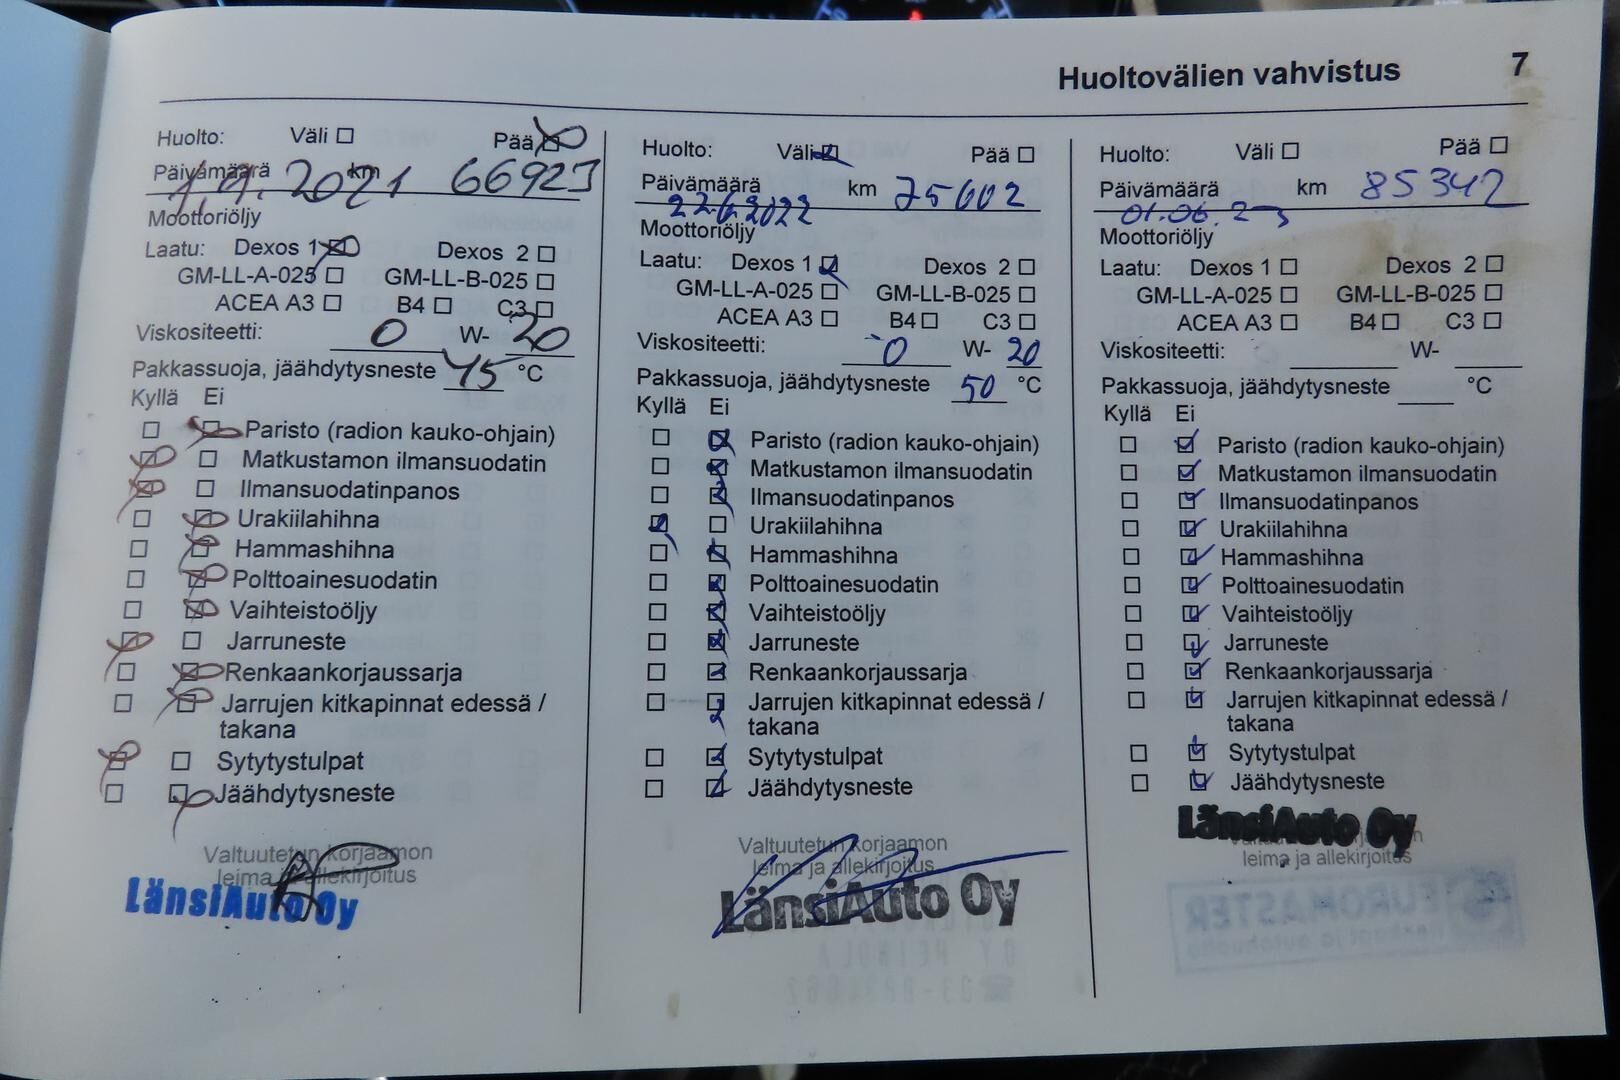 Huoltovälien vahvistus 7
Huolto: Väli ☐ Pää ☒
Päivämäärä 1.9.2021 km 66923
Moottoriöljy
Laatu: Dexos 1 ☒ Dexos 2 ☐
GM-LL-A-025 ☐ GM-LL-B-025 ☐
ACEA A3 ☐ B4 ☐ C3 ☐
Viskositeetti: 0 W- 20
Pakkassuoja, jäähdytysneste 45 °C
Kyllä Ei
☐ ☒ Paristo (radion kauko-ohjain)
☒ ☐ Matkustamon ilmansuodatin
☒ ☐ Ilmansuodatinpanos
☐ ☒ Urakiilahihna
☐ ☒ Hammashihna
☐ ☒ Polttoainesuodatin
☐ ☒ Vaihteistoöljy
☒ ☐ Jarruneste
☐ ☒ Renkaankorjaussarja
☐ ☒ Jarrujen kitkapinnat edessä /
takana
☒ ☐ Sytytystulpat
☐ ☒ Jäähdytysneste
Valtuutetun korjaamon
leima ja allekirjoitus
LänsiAuto Oy
Huolto: Väli ☒ Pää ☐
Päivämäärä km 75602
22.6.2022
Moottoriöljy
Laatu: Dexos 1 ☒ Dexos 2 ☐
GM-LL-A-025 ☐ GM-LL-B-025 ☐
ACEA A3 ☐ B4 ☐ C3 ☐
Viskositeetti: 0 W- 20
Pakkassuoja, jäähdytysneste 50 °C
Kyllä Ei
☐ ☒ Paristo (radion kauko-ohjain)
☐ ☒ Matkustamon ilmansuodatin
☐ ☒ Ilmansuodatinpanos
☒ ☐ Urakiilahihna
☐ ☒ Hammashihna
☐ ☒ Polttoainesuodatin
☐ ☒ Vaihteistoöljy
☐ ☒ Jarruneste
☐ ☒ Renkaankorjaussarja
☐ ☒ Jarrujen kitkapinnat edessä /
takana
☐ ☒ Sytytystulpat
☐ ☒ Jäähdytysneste
Valtuutetun korjaamon
leima ja allekirjoitus
LänsiAuto Oy
Huolto: Väli ☐ Pää ☐
Päivämäärä km 85342
01.06.23
Moottoriöljy
Laatu: Dexos 1 ☐ Dexos 2 ☐
GM-LL-A-025 ☐ GM-LL-B-025 ☐
ACEA A3 ☐ B4 ☐ C3 ☐
Viskositeetti: W-
Pakkassuoja, jäähdytysneste °C
Kyllä Ei
☐ ☑ Paristo (radion kauko-ohjain)
☐ ☑ Matkustamon ilmansuodatin
☐ ☑ Ilmansuodatinpanos
☐ ☑ Urakiilahihna
☐ ☑ Hammashihna
☐ ☑ Polttoainesuodatin
☐ ☑ Vaihteistoöljy
☐ ☑ Jarruneste
☐ ☑ Renkaankorjaussarja
☐ ☑ Jarrujen kitkapinnat edessä /
takana
☐ ☑ Sytytystulpat
☐ ☑ Jäähdytysneste
LänsiAuto Oy
leima ja allekirjoitus
EUROMASTER